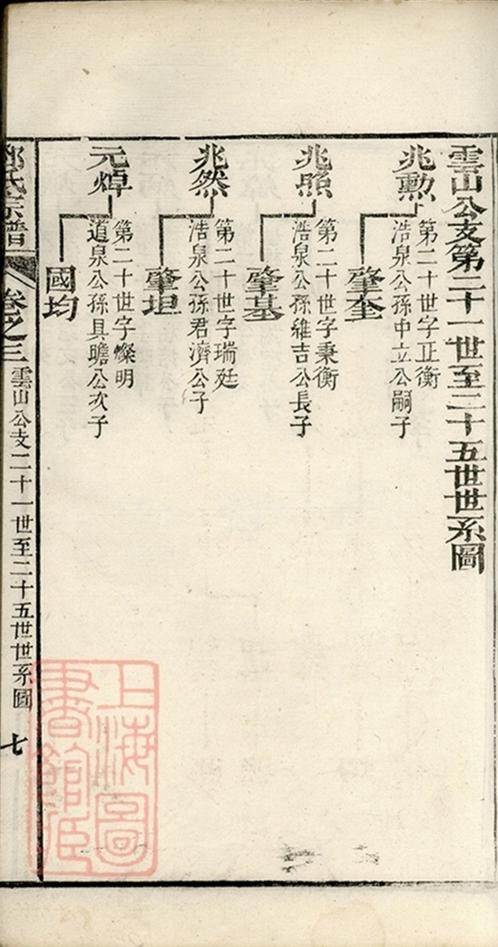 雲山公支第二十一世至二十五世世系圖
兆勳
第二十世字正衡
浩泉公孫中立公嗣子
肇奎
兆照
第二十世字秉衡
浩泉公孫維吉公長子
肇基
兆然
第二十世字瑞廷
浩泉公孫君濟公子
肇坦
元焯
第二十世字燦明
道泉公孫具瞻公次子
國均
氏宗譜
卷之三
雲山公支二十一世至二十五世世系圖
七
上海圖
書館藏